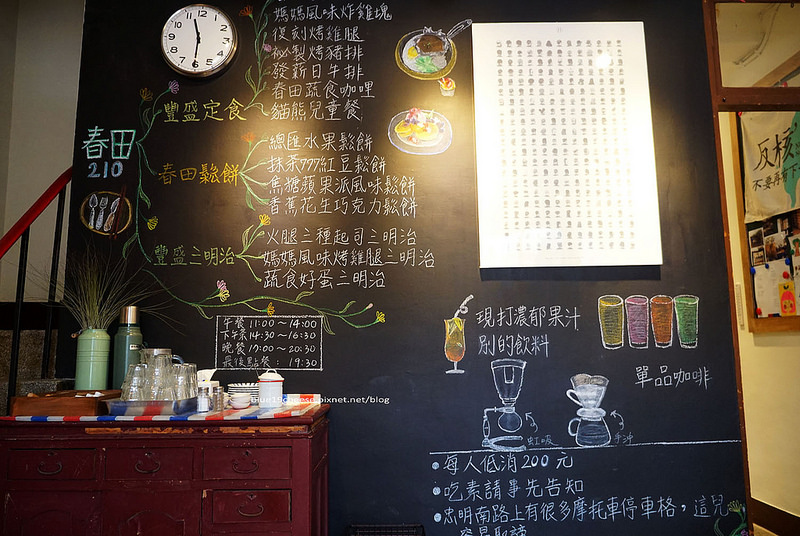 媽媽風味炸雞塊
復刻烤雞腿
秘製烤豬排
發薪日牛排
春田蔬食咖哩
貓熊兒童餐
豐盛定食
春田
210
總匯水果鬆餅
抹茶777紅豆鬆餅
焦糖蘋果派風味鬆餅
香蕉花生巧克力鬆餅
春田鬆餅
火腿三種起司三明治
媽媽風味烤雞腿三明治
蔬食好蛋三明治
豐盛三明治
午餐 11:00～14:00
下午茶 14:30～16:30
晚餐 17:00～20:30
最後點餐: 19:30
現打濃郁果汁
別的飲料
單品咖啡
虹吸
手沖
•每人低消200元
•吃素請事先告知
•忠明南路上有很多摩托車停車格，這兒
反核
不要再有下